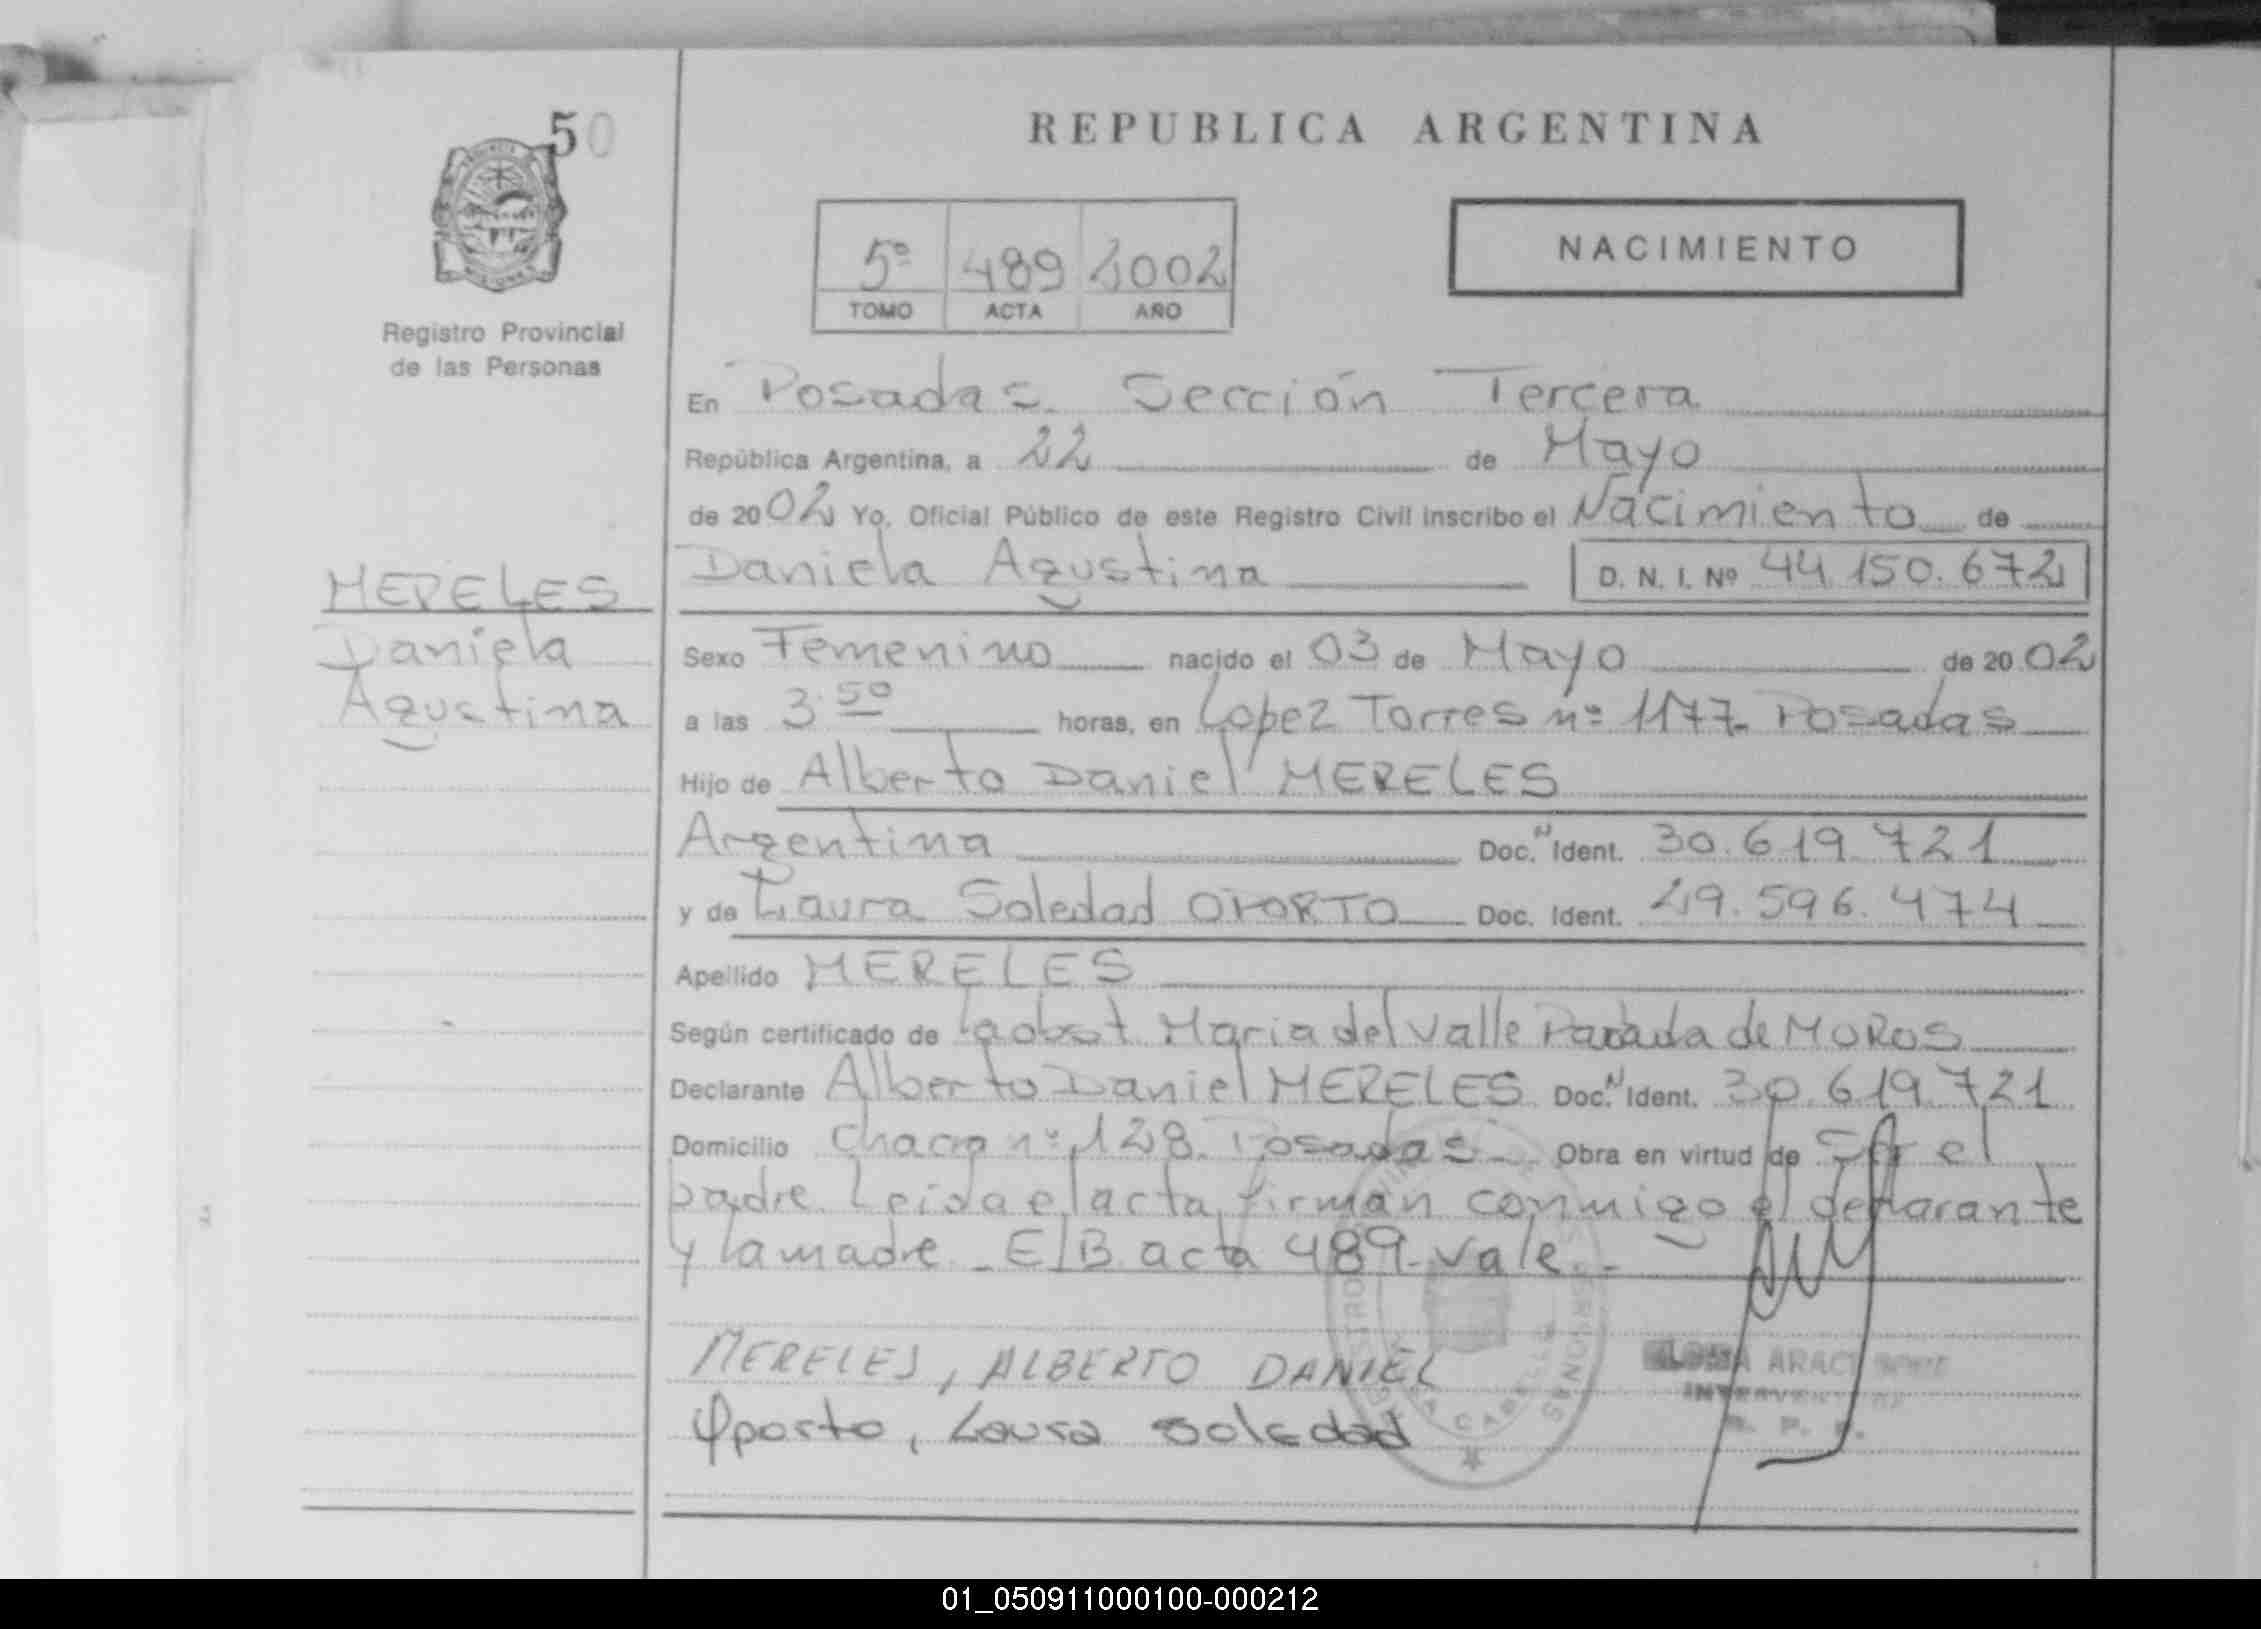 50
REPUBLICA ARGENTINA
5º 489 2002
TOMO ACTA AÑO
NACIMIENTO
Registro Provincial
de las Personas
En Posadas. Sección Tercera
República Argentina, a 22 de Mayo
de 2002 Yo, Oficial Público de este Registro Civil inscribo el Nacimiento de
Daniela Agustina D. N. I. Nº 44.150.672
MERELES
Daniela
Agustina
Sexo Femenino nacido el 03 de Mayo de 2002
a las 3.50 horas, en Lopez Torres nº 1177 Posadas
Hijo de Alberto Daniel MERELES
Argentina Doc. N Ident. 30.619.721
y de Laura Soledad OPORTO Doc. Ident. 29.596.474
Apellido MERELES
Según certificado de la obst. Maria del Valle Parada de MOROS
Declarante Alberto Daniel MERELES Doc. N Ident. 30.619.721
Domicilio Chacra nº 128. Posadas Obra en virtud de Ser el
padre. Leida el acta, firman conmigo el declarante
y la madre. E/B. acta 489. vale.
MERELES, ALBERTO DANIEL
Oporto, Laura Soledad
01_050911000100-000212